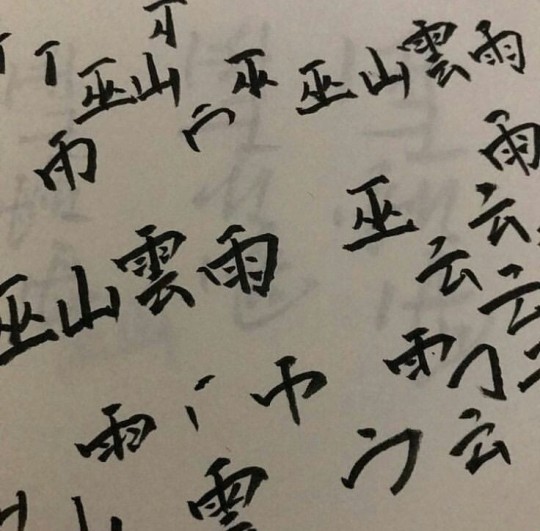 巫山 巫 巫山雲雨
雨 雨
巫 云
巫山雲雨 云
云
雨
雨 云
山 雲